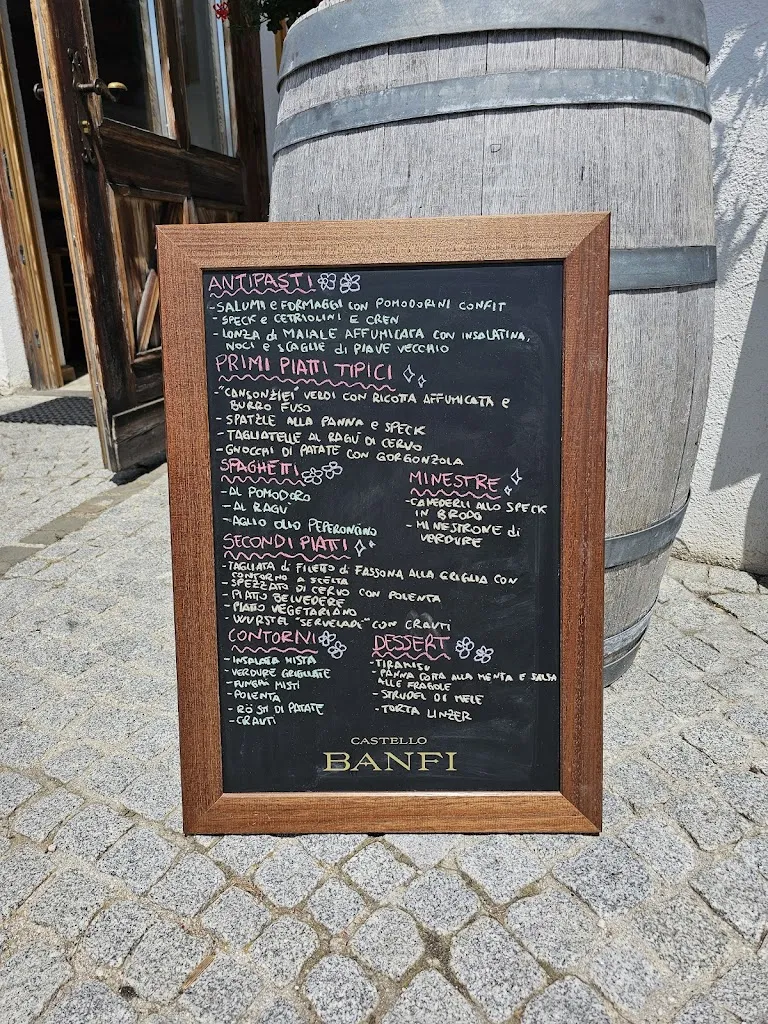 ANTIPASTI
- SALUMI e FORMAGGI CON POMODORINI CONFIT
- SPECK e CETRIOLINI E CREN
- LONZA di MAIALE AFFUMICATA CON INSALATINA,
NOCI e SCAGLIE di PIAVE VECCHIO
PRIMI PIATTI TIPICI
- "CANSONZIEI" VERDI CON RICOTTA AFFUMICATA e
BURRO FUSO
- SPATZLE ALLA PANNA e SPECK
- TAGLIATELLE AL RAGU' DI CERVO
- GNOCCHI DI PATATE CON GORGONZOLA
SPAGHETTI
- AL POMODORO
- AL RAGU'
- AGLIO OLIO PEPERONCINO
MINESTRE
- CANEDERLI ALLO SPECK
IN BRODO
- MINESTRONE di
VERDURE
SECONDI PIATTI
- TAGLIATA di FILETTO di FASSONA ALLA GRIGLIA CON
CONTORNO A SCELTA
- SPEZZATO DI CERVO CON POLENTA
- PIATTO BELVEDERE
- PIATTO VEGETARIANO
- WURSTEL "SERVELADE" CON CRAUTI
CONTORNI
- INSALATA MISTA
- VERDURE GRIGLIATE
- FUNGHI MISTI
- POLENTA
- RÖSTI DI PATATE
- CRAUTI
DESSERT
- TIRAMISU
- PANNA COTTA ALLA MENTA E SALSA
ALLE FRAGOLE
- STRUDEL DI MELE
- TORTA LINZER
CASTELLO
BANFI